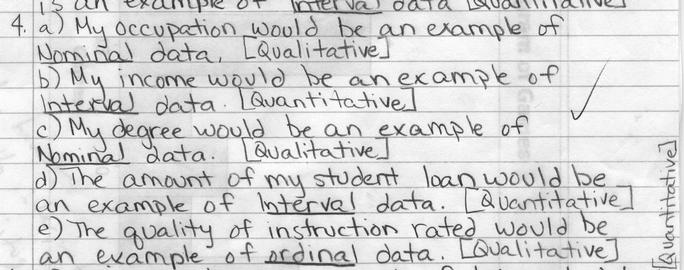 is an example of Interval data [Quantitative]
4. a) My occupation would be an example of
Nominal data, [Qualitative]
b) My income would be an example of
Interval data. [Quantitative]
c) My degree would be an example of
Nominal data. [Qualitative]
d) The amount of my student loan would be
an example of Interval data. [Quantitative]
e) The quality of instruction rated would be
an example of ordinal data. [Qualitative]
[Quantitative]